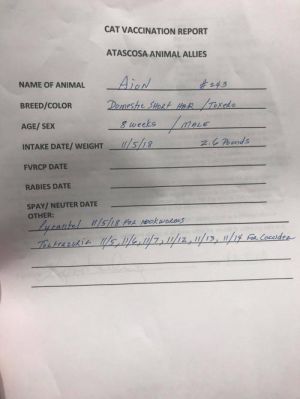 CAT VACCINATION REPORT
ATASCOSA ANIMAL ALLIES
NAME OF ANIMAL Aion #243
BREED/COLOR Domestic Short Hair / Tuxedo
AGE/ SEX 8 weeks / MALE
INTAKE DATE/ WEIGHT 11/5/18 2.6 Pounds
FVRCP DATE
RABIES DATE
SPAY/ NEUTER DATE
OTHER:
Pyrantel 11/5/18 For Hookworms
11/5, 11/6, 11/7, 11/12, 11/13, 11/14 For